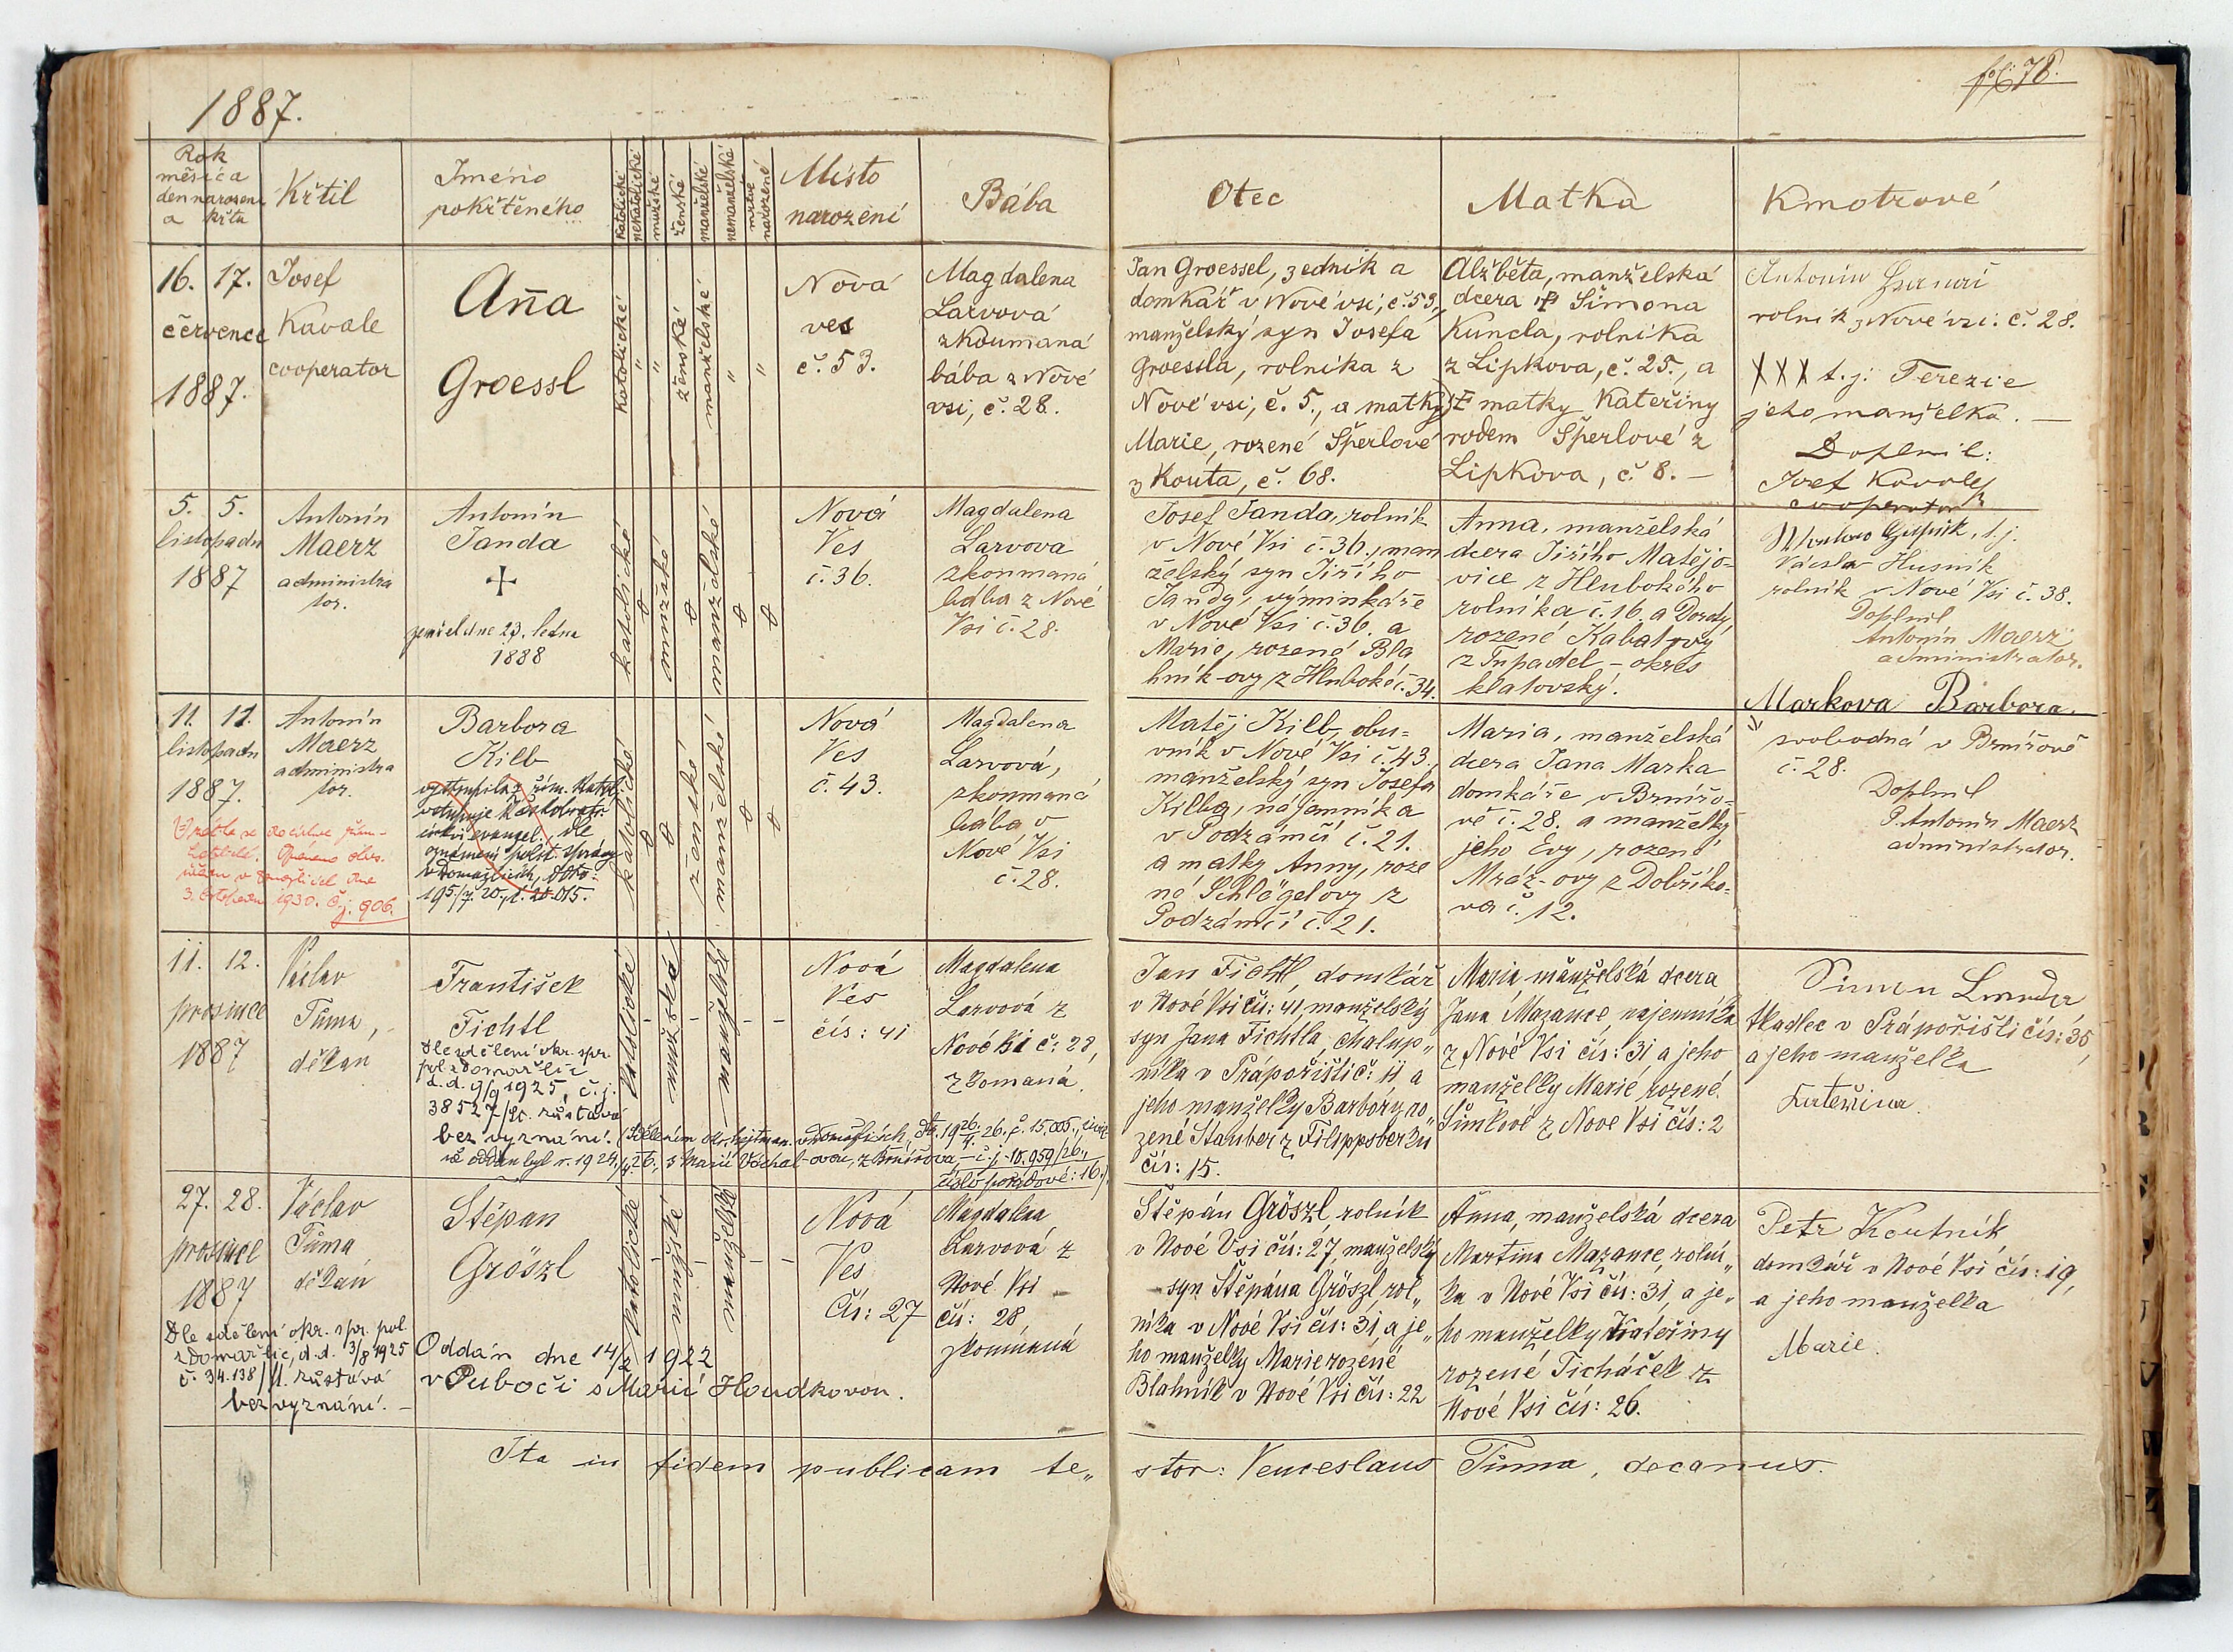 1887.
fol: 78.
Rok
měsíc a
den narození
a křtu
Křtil
Jméno
pokřtěného
katolické
nekatolické
mužské
ženské
manželské
nemanželské
mrtvě
narozené
Místo
narození
Bába
Otec
Matka
Kmotrové
16. 17.
července
1887.
Josef
Kavale
cooperator
Añna
Groessl
katolické
"
"
ženské
manželské
"
"
Nová
ves
č. 53.
Magdalena
Larvová
zkoumaná
bába z Nové
vsi, č. 28.
Jan Groessel, zedník a
domkář v Nové vsi, č. 53.,
manželský syn Josefa
Groessla, rolníka z
Nové vsi, č. 5., a matky
Marie, rozené Šperlové
z Kouta, č. 68.
Alžběta, manželská
dcera Šimona
Kuncla, rolníka
z Lipkova, č. 25., a
matky Kateřiny
rodem Šperlové z
Lipkova, č. 8. —
Antonín
rolník z Nové vsi. č. 28.
XXX t. j. Terezie
jeho manželka. —
Doplnil:
Josef Kavale
cooperator
5. 5.
listopadu
1887
Antonín
Maerz
administra
tor.
Antonín
Janda
+
zemřel dne 23. ledna
1888
katolické
mužské
manželské
Nová
Ves
č. 36.
Magdalena
Larvova
zkoumaná
bába z Nové
Vsi č. 28.
Josef Janda, rolník
v Nové Vsi č. 36., man
želský syn Jiřího
Jandy, výminkáře
v Nové Vsi č. 36. a
Marie, rozené Bla
hník-ovy z Hluboké č. 34.
Anna, manželská
dcera Jiřího Matějo-
vice z Hlubokého
rolníka č. 16. a Doroty
rozené Kabátovy
z Tupadel - okres
klatovský.
t. j.
Václav Husník
rolník v Nové Vsi č. 38.
Doplnil
Antonín Maerz
administrator.
11. 12.
listopadu
1887.
Antonín
Maerz
administra
tor.
Barbora
Kilb
vystoupila z řím. katol.
vstupuje k českobratr.
církvi evangel. dle
oznámení polit. správy
v Domažlicích, ddto:
195/7. 20., č. 20.015.
3. listopadu 1930. č. j. 906.
katolické
ženské
manželské
Nová
Ves
č. 43.
Magdalena
Larvová,
zkoumaná
bába v
Nové Vsi
č. 28.
Matěj Kilb, obu-
vník v Nové Vsi č. 43.,
manželský syn Josefa
Kilba, nájemníka
v Podzámčí č. 21.
a matky Anny, roze
né Schlögelovy z
Podzámčí č. 21.
Maria, manželská
dcera Jana Marka
domkáře v Brnířo-
vě č. 28. a manželky
jeho Evy, rozené
Mráz-ovy z Dobříko-
va č. 12.
Markova Barbora.
svobodná v Brnířově
č. 28.
Doplnil
P. Antonín Maerz
administrator.
11. 12.
prosince
1887
Václav
Tůma,
děkan
František
Fichtl
Dle sdělení okr. spr.
pol. z Domažlic
d. d. 9/9 1925, č. j.
38527/ zůstává
bez vyznání.
katolické
mužské
manželské
Nová
Ves
čís: 41
Magdalena
Larvová z
Nové Vsi č: 28,
zkomaná.
Jan Fichtl, domkář
v Nové Vsi čís: 41, manželský
syn Jana Fichtla, chalup„
níka v Prápořišti č: 11 a
jeho manželky Barbory ro„
zené Stauber z Filippsberku
čís: 15.
Maria, manželská dcera
Jana Mazance, nájemníka
z Nové Vsi čís: 31 a jeho
manželky Marie, rozené
Šimkové z Nové Vsi čís: 2
Simon
tkadlec v Prápořišti čís: 35,
a jeho manželka
Kateřina.
27. 28.
prosince
1887
Václav
Tůma
děkan
Štěpan
Gröszl
katolické
mužské
manželské
Nová
Ves
Čís: 27
Magdalena
Larvová z
Nové Vsi
čís: 28,
zkoumaná
Štěpán Gröszl, rolník
v Nové Vsi čís: 27, manželský
syn Štěpána Gröszl, rol„
níka v Nové Vsi čís: 31, a je„
ho manželky Marie rozené
Blahník v Nové Vsi čís: 22
Anna, manželská dcera
Martina Mazance, rolní„
ka v Nové Vsi čís: 31, a je„
ho manželky Kateřiny
rozené Ticháček z
Nové Vsi čís: 26.
Petr Koutník
domkář v Nové Vsi čís: 19,
a jeho manželka
Marie.
Dle sdělení okr. spr. pol.
z Domažlic, d. d. 3/8 1925
č. 34.138/ zůstává
bez vyznání. —
Oddán dne 14/2 1922
v Puboči s Marií Houdkovou.
Ita in fidem publicam te„
stor: Venceslaus Tůma, decanus.